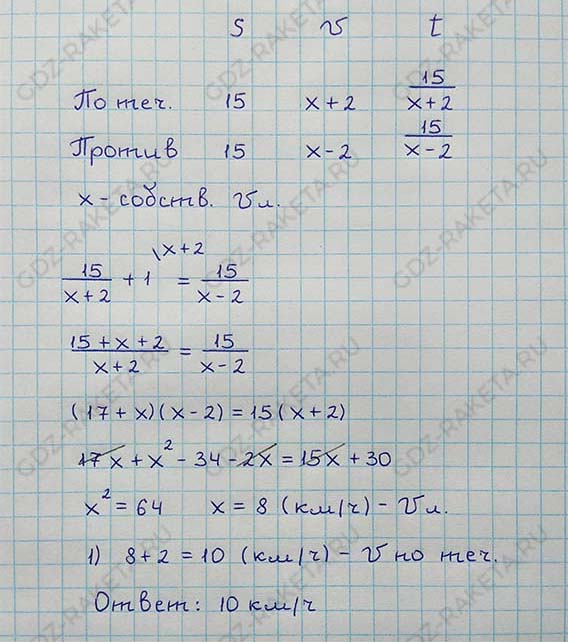 S v t
По теч. 15 x+2 15/(x+2)
Против 15 x-2 15/(x-2)
x - собств. v л.
15/(x+2) + 1 \x+2 = 15/(x-2)
(15+x+2)/(x+2) = 15/(x-2)
(17+x)(x-2) = 15(x+2)
17x + x² - 34 - 2x = 15x + 30
x² = 64 x = 8 (км/ч) - v л.
1) 8+2 = 10 (км/ч) - v по теч.
Ответ: 10 км/ч
GDZ-RAKETA.RU